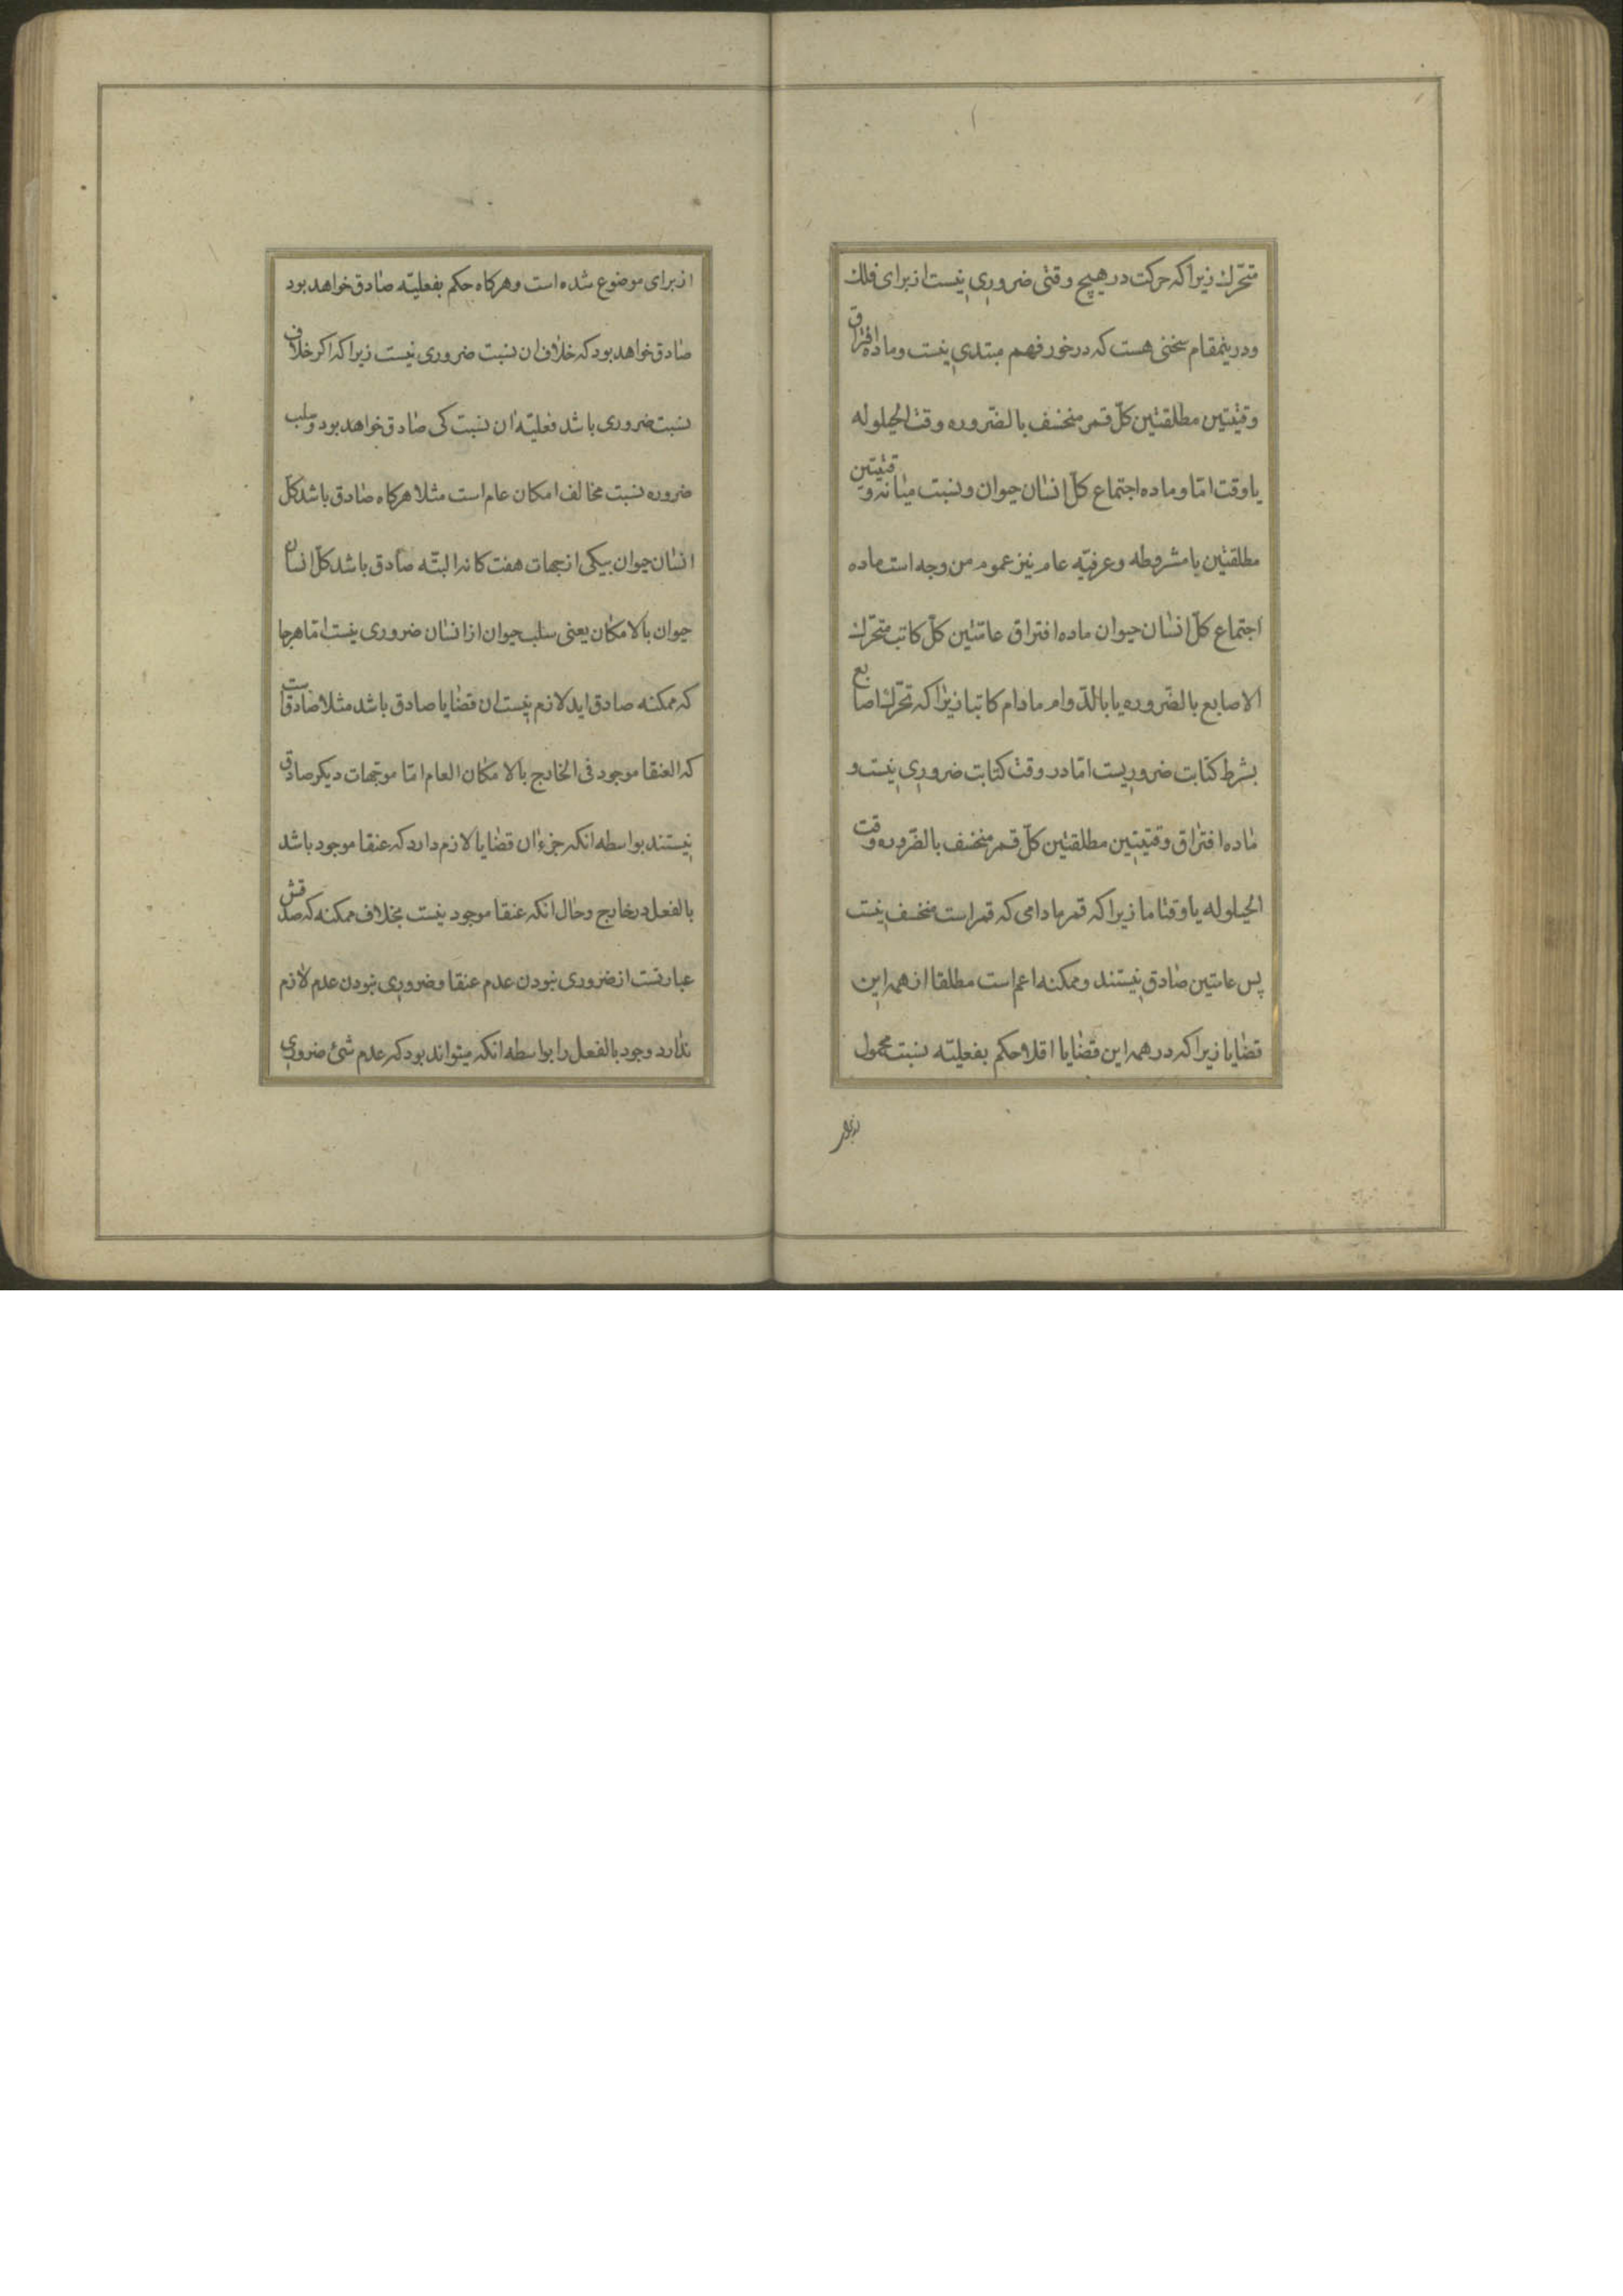 متحرك زیرا که حرکت در هیچ وقتی ضروری نیست از برای فلك
و درینمقام سخنی هست که در خور فهم مبتدی نیست و ماده افتراق
وقتیتین مطلقتین کلّ قمر منخسف بالضّروره وقت الحیلوله
یا وقت امّا و ماده اجتماع کلّ انسان حیوان و نسبت میانه وقتیتین
مطلقتین یا مشروطه و عرفیّه عام نیز عموم من وجه است ماده
اجتماع کلّ انسان حیوان ماده افتراق عامتین کلّ کاتب متحرّك
الاصابع بالضّروره یا بالدّوام مادام کاتبا زیرا که تحرّك اصابع
بشرط کتابت ضروریست امّا در وقت کتابت ضروری نیست و
ماده افتراق وقتیتین مطلقتین کلّ قمر منخسف بالضّروره وقت
الحیلوله یا وقتا ما زیرا که قمر مادامی که قمر است منخسف نیست
پس عامتین صادق نیستند و ممکنه اعم است مطلقا از همه این
قضایا زیرا که در همه این قضایا اقلا حکم بفعلیّه نسبت محمول
از برای موضوع شده است و هرکاه حکم بفعلیّه صادق خواهد بود
صادق خواهد بود که خلاف ان نسبت ضروری نیست زیرا که اکر خلاف
نسبت ضروری باشد فعلیّه ان نسبت کی صادق خواهد بود و سلب
ضروره نسبت مخالف امکان عام است مثلا هرکاه صادق باشد کلّ
انسان حیوان بیکی از جهات هفت کانه البتّه صادق باشد کلّ انسان
حیوان بالامکان یعنی سلب حیوان از انسان ضروری نیست امّا هرجا
که ممکنه صادق اید لازم نیست ان قضایا صادق باشد مثلا صادقست
که العنقا موجود فی الخارج بالامکان العام امّا موجهات دیکر صادق
نیستند بواسطه انکه جزء ان قضایا لازم دارد که عنقا موجود باشد
بالفعل در خارج و حال انکه عنقا موجود نیست بخلاف ممکنه که صدقش
عبارتست از ضروری نبودن عدم عنقا و ضروری نبودن عدم لازم
ندارد وجود بالفعل را بواسطه انکه میتواند بود که عدم شئ ضروری